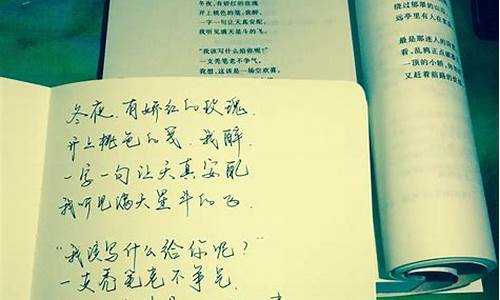 冬夜，有娇红的玫瑰
开上桃色的笺，我醉，
一字一句让天真安配，
我听见满天星斗的飞。
“我该写什么给你呢？”
一支秃笔老不争气。
我想，这该是一场空欢喜。
绕过郁翠的山
远亭里有人在
最是那迷人的
看，乱鸦正点破
一顶的小轿，
又赶着前路的
冬夜，有娇红的玫瑰，
开上桃色的笺，我醉，
一字一句让天真安配
我听见满天星斗的飞，
“我该写什么给你呢？”
一支秃笔老不争气，